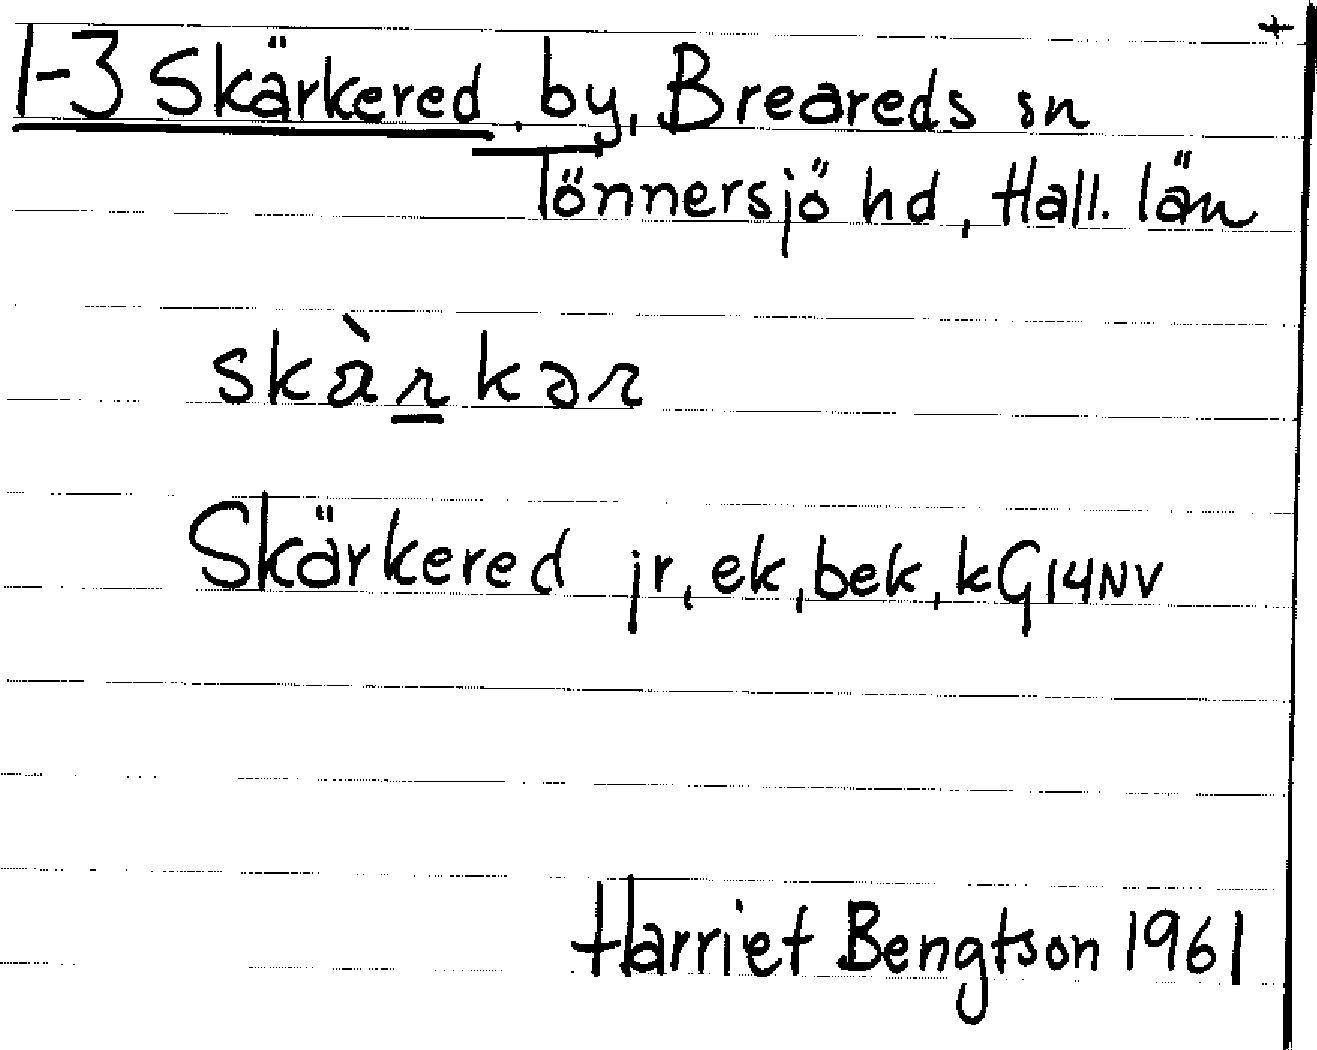 +
1-3 Skärkered, by, Breareds sn
Tönnersjö hd, Hall. län
skàrkər
Skärkered jr, ek, bek, kG14NV
Harriet Bengtson 1961